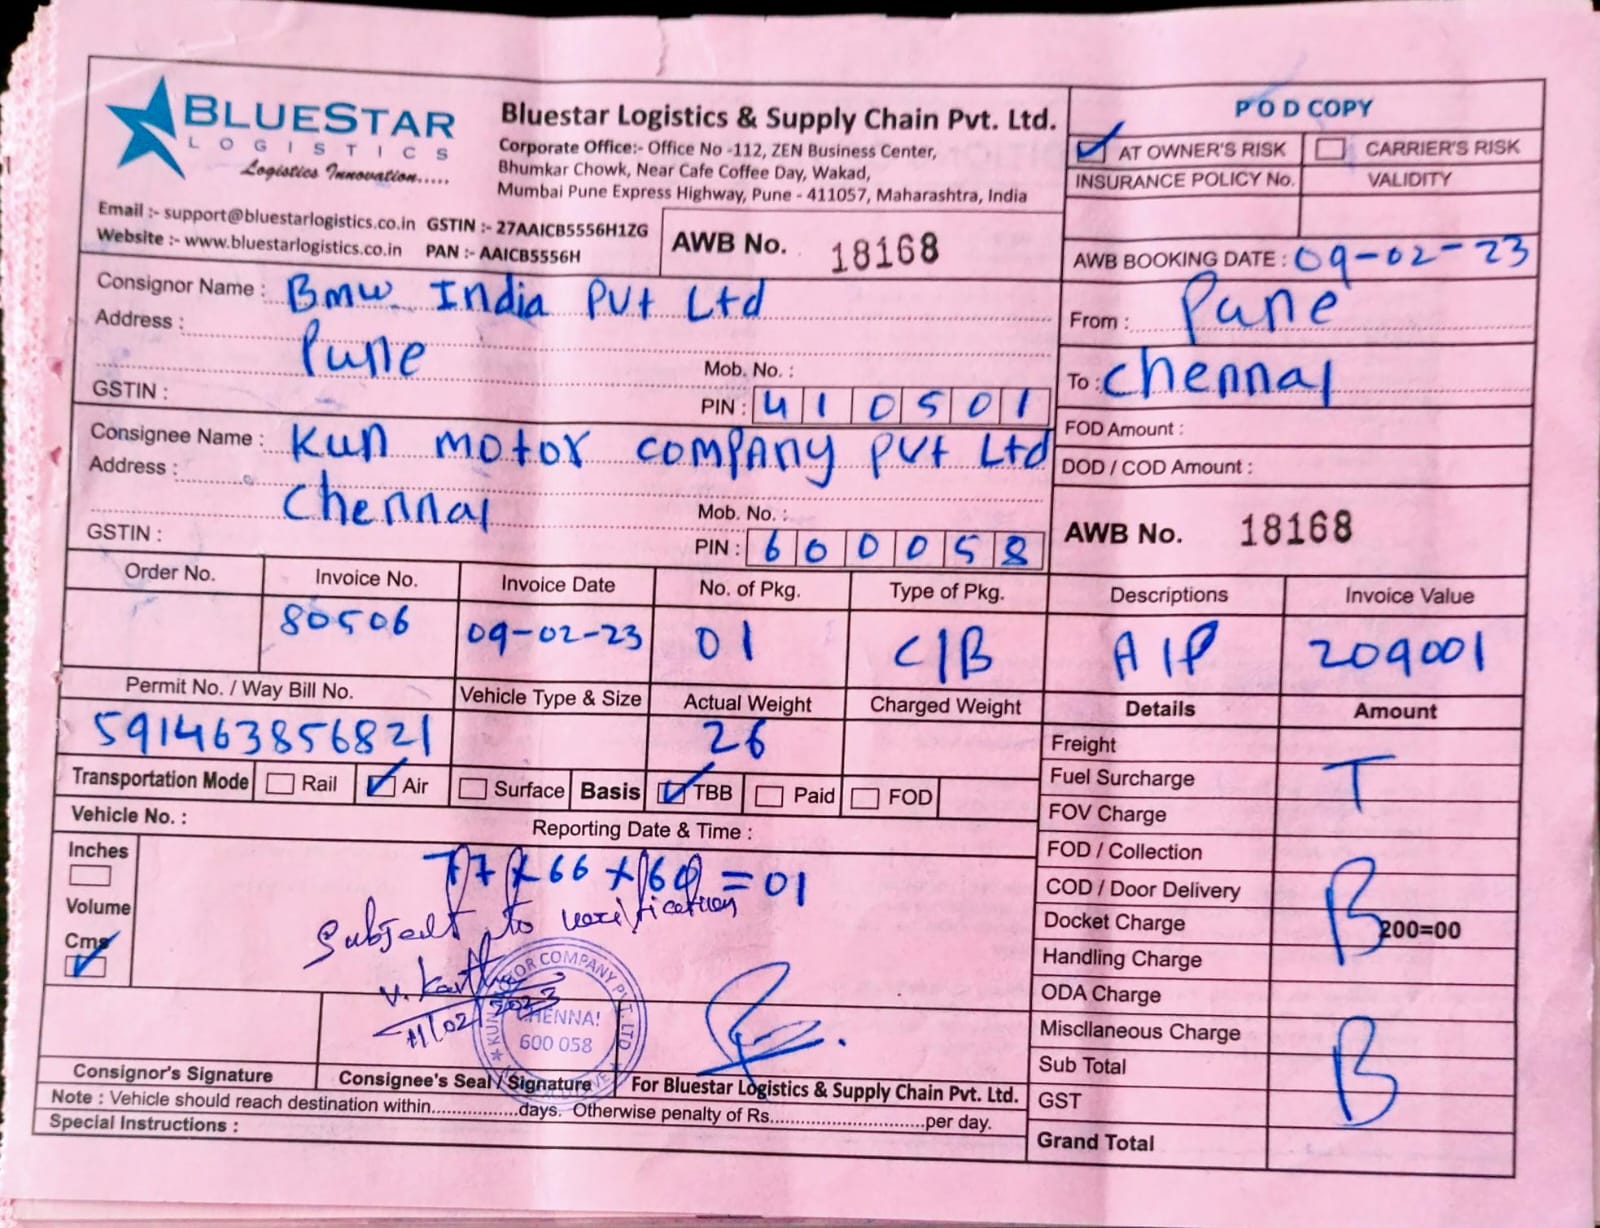 BLUESTAR
LOGISTICS
Logistics Innovation.....
Bluestar Logistics & Supply Chain Pvt. Ltd.
Corporate Office:- Office No -112, ZEN Business Center,
Bhumkar Chowk, Near Cafe Coffee Day, Wakad,
Mumbai Pune Express Highway, Pune - 411057, Maharashtra, India
Email :- support@bluestarlogistics.co.in GSTIN :- 27AAICB5556H1ZG
Website :- www.bluestarlogistics.co.in PAN :- AAICB5556H
AWB No. 18168
P O D COPY
AT OWNER'S RISK CARRIER'S RISK
INSURANCE POLICY No. VALIDITY
AWB BOOKING DATE : 09-02-23
Consignor Name : Bmw India Pvt Ltd
Address : Pune
Mob. No. :
GSTIN :
PIN : 410501
From : Pune
To : Chennai
FOD Amount :
DOD / COD Amount :
Consignee Name : Kun motor company Pvt Ltd
Address : Chennai
Mob. No. :
GSTIN :
PIN : 600058
AWB No. 18168
Order No. Invoice No. Invoice Date No. of Pkg. Type of Pkg. Descriptions Invoice Value
80506 09-02-23 01 C/B A/P 209001
Permit No. / Way Bill No. Vehicle Type & Size Actual Weight Charged Weight Details Amount
591463856821 26
Transportation Mode Rail Air Surface Basis TBB Paid FOD
Vehicle No. : Reporting Date & Time :
Inches
Volume
Cms
77 x 66 x 60 = 01
Subject to verification
V. Karthi
11/02/2023
KUN MOTOR COMPANY PVT. LTD
CHENNAI
600 058
Freight
Fuel Surcharge T
FOV Charge
FOD / Collection
COD / Door Delivery B
Docket Charge 200=00
Handling Charge
ODA Charge
Miscllaneous Charge
Sub Total B
GST
Grand Total
Consignor's Signature Consignee's Seal / Signature For Bluestar Logistics & Supply Chain Pvt. Ltd.
Note : Vehicle should reach destination within.................days. Otherwise penalty of Rs...............................per day.
Special Instructions :